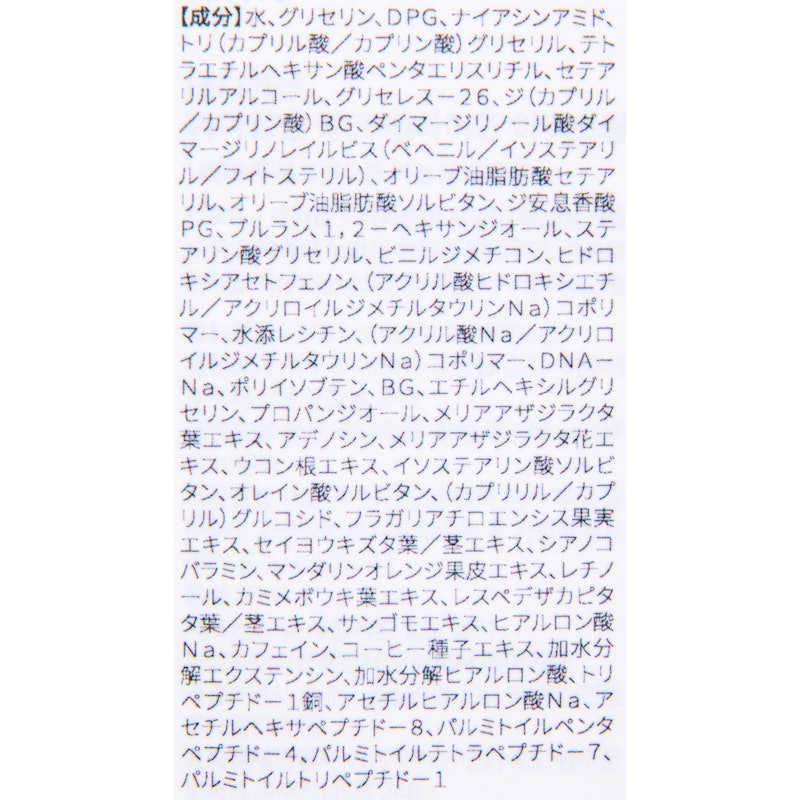 【成分】水、グリセリン、DPG、ナイアシンアミド、
トリ(カプリル酸／カプリン酸)グリセリル、テト
ラエチルヘキサン酸ペンタエリスリチル、セテア
リルアルコール、グリセレス－26、ジ(カプリル
／カプリン酸)BG、ダイマージリノール酸ダイ
マージリノレイルビス(ベヘニル／イソステアリ
ル／フィトステリル)、オリーブ油脂肪酸セテア
リル、オリーブ油脂肪酸ソルビタン、ジ安息香酸
PG、プルラン、1,2－ヘキサンジオール、ステ
アリン酸グリセリル、ビニルジメチコン、ヒドロ
キシアセトフェノン、(アクリル酸ヒドロキシエチ
ル／アクリロイルジメチルタウリンNa)コポリ
マー、水添レシチン、(アクリル酸Na／アクリロ
イルジメチルタウリンNa)コポリマー、DNA－
Na、ポリイソブテン、BG、エチルヘキシルグリ
セリン、プロパンジオール、メリアアザジラクタ
葉エキス、アデノシン、メリアアザジラクタ花エ
キス、ウコン根エキス、イソステアリン酸ソルビ
タン、オレイン酸ソルビタン、(カプリリル／カプ
リル)グルコシド、フラガリアチロエンシス果実
エキス、セイヨウキズタ葉／茎エキス、シアノコ
バラミン、マンダリンオレンジ果皮エキス、レチノ
ール、カミメボウキ葉エキス、レスペデザカピタ
タ葉／茎エキス、サンゴモエキス、ヒアルロン酸
Na、カフェイン、コーヒー種子エキス、加水分
解エクステンシン、加水分解ヒアルロン酸、トリ
ペプチド－1銅、アセチルヒアルロン酸Na、ア
セチルヘキサペプチド－8、パルミトイルペンタ
ペプチド－4、パルミトイルテトラペプチド－7、
パルミトイルトリペプチド－1